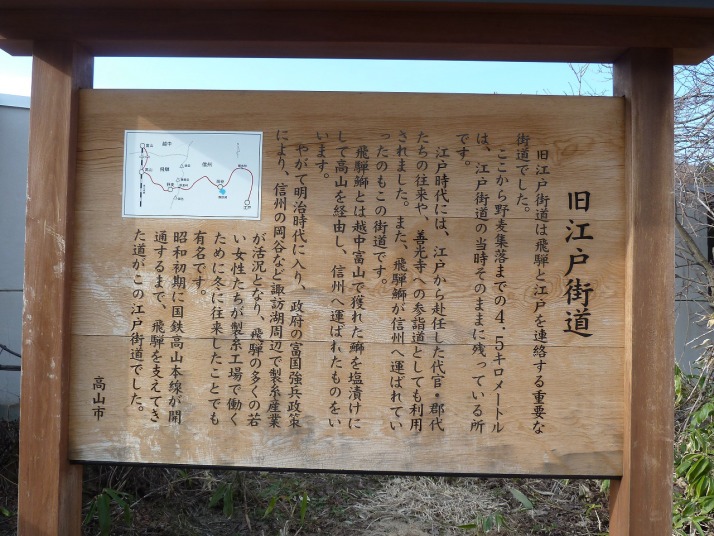 旧江戸街道
旧江戸街道は飛騨と江戸を連絡する重要な
街道でした。
ここから野麦集落までの4.5キロメートル
は、江戸街道の当時そのままに残っている所
です。
江戸時代には、江戸から赴任した代官・郡代
たちの往来や、善光寺への参詣道としても利用
されました。また、飛騨鰤が信州へ運ばれてい
ったのもこの街道です。
飛騨鰤とは越中富山で獲れた鰤を塩漬けに
して高山を経由し、信州へ運ばれたものをい
います。
やがて明治時代に入り、政府の富国強兵政策
により、信州の岡谷など諏訪湖周辺で製糸産業
が活況となり、飛騨の多くの若
い女性たちが製糸工場で働く
ために冬に往来したことでも
有名です。
昭和初期に国鉄高山本線が開
通するまで、飛騨を支えてき
た道がこの江戸街道でした。
高山市
富山
越中
飛騨
高山
信州
江戸